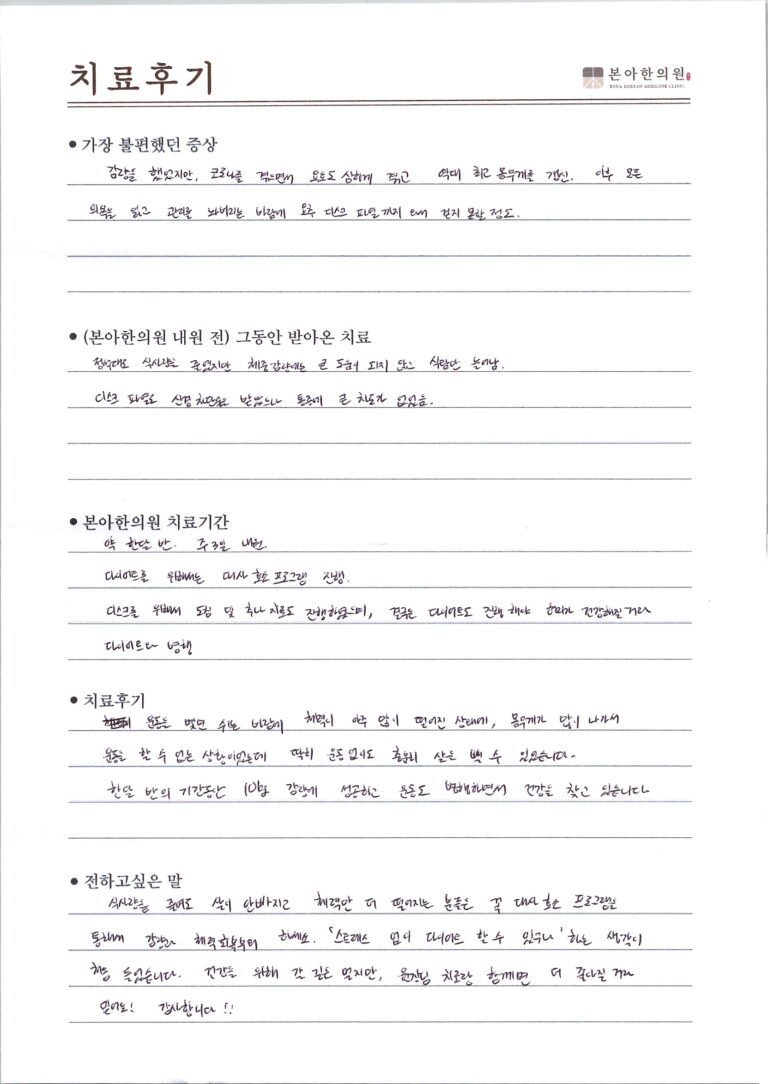 치료후기
본아한의원
BONA KOREAN MEDICINE CLINIC
● 가장 불편했던 증상
감량을 했었지만, 코로나를 겪으면서 요요도 심하게 겪고 역대 최고 몸무게를 갱신. 이후 모든
의욕을 잃고 관리를 놔버리는 바람에 요추 디스크 파열까지 와서 걷지 못할 정도.
● (본아한의원 내원 전) 그동안 받아온 치료
절식대로 식사량을 줄였지만 체중감량에는 큰 도움이 되지 않고 식탐만 늘어남.
디스크 파열로 신경차단술도 받았으나 통증에 큰 차도가 없었음.
● 본아한의원 치료기간
약 한달 반. 주 3일 내원.
다이어트를 위해서는 대사효소 프로그램 진행.
디스크를 위해서 도침 및 추나 치료도 진행하였으며, 결국은 다이어트도 진행해야 허리가 건강해질거라
다이어트와 병행
● 치료후기
운동을 몇년 쉬는 바람에 체력이 아주 많이 떨어진 상태에, 몸무게가 많이 나가서
운동을 할 수 없는 상황이었는데 딱히 운동 없이도 충분히 살을 뺄 수 있었습니다.
한달 반의 기간동안 10kg 감량에 성공하고 운동도 병행하면서 건강을 찾고 있습니다
● 전하고싶은 말
식사량을 줄여도 살이 안빠지고 체력만 더 떨어지는 분들은 꼭 대사효소 프로그램을
통해서 감량과 체력회복부터 하세요. '스트레스 없이 다이어트 할 수 있구나' 하는 생각이
처음 들었습니다. 건강을 위해 갈 길은 멀지만, 원장님 치료랑 함께면 더 좋아질 거라
믿어요! 감사합니다!!